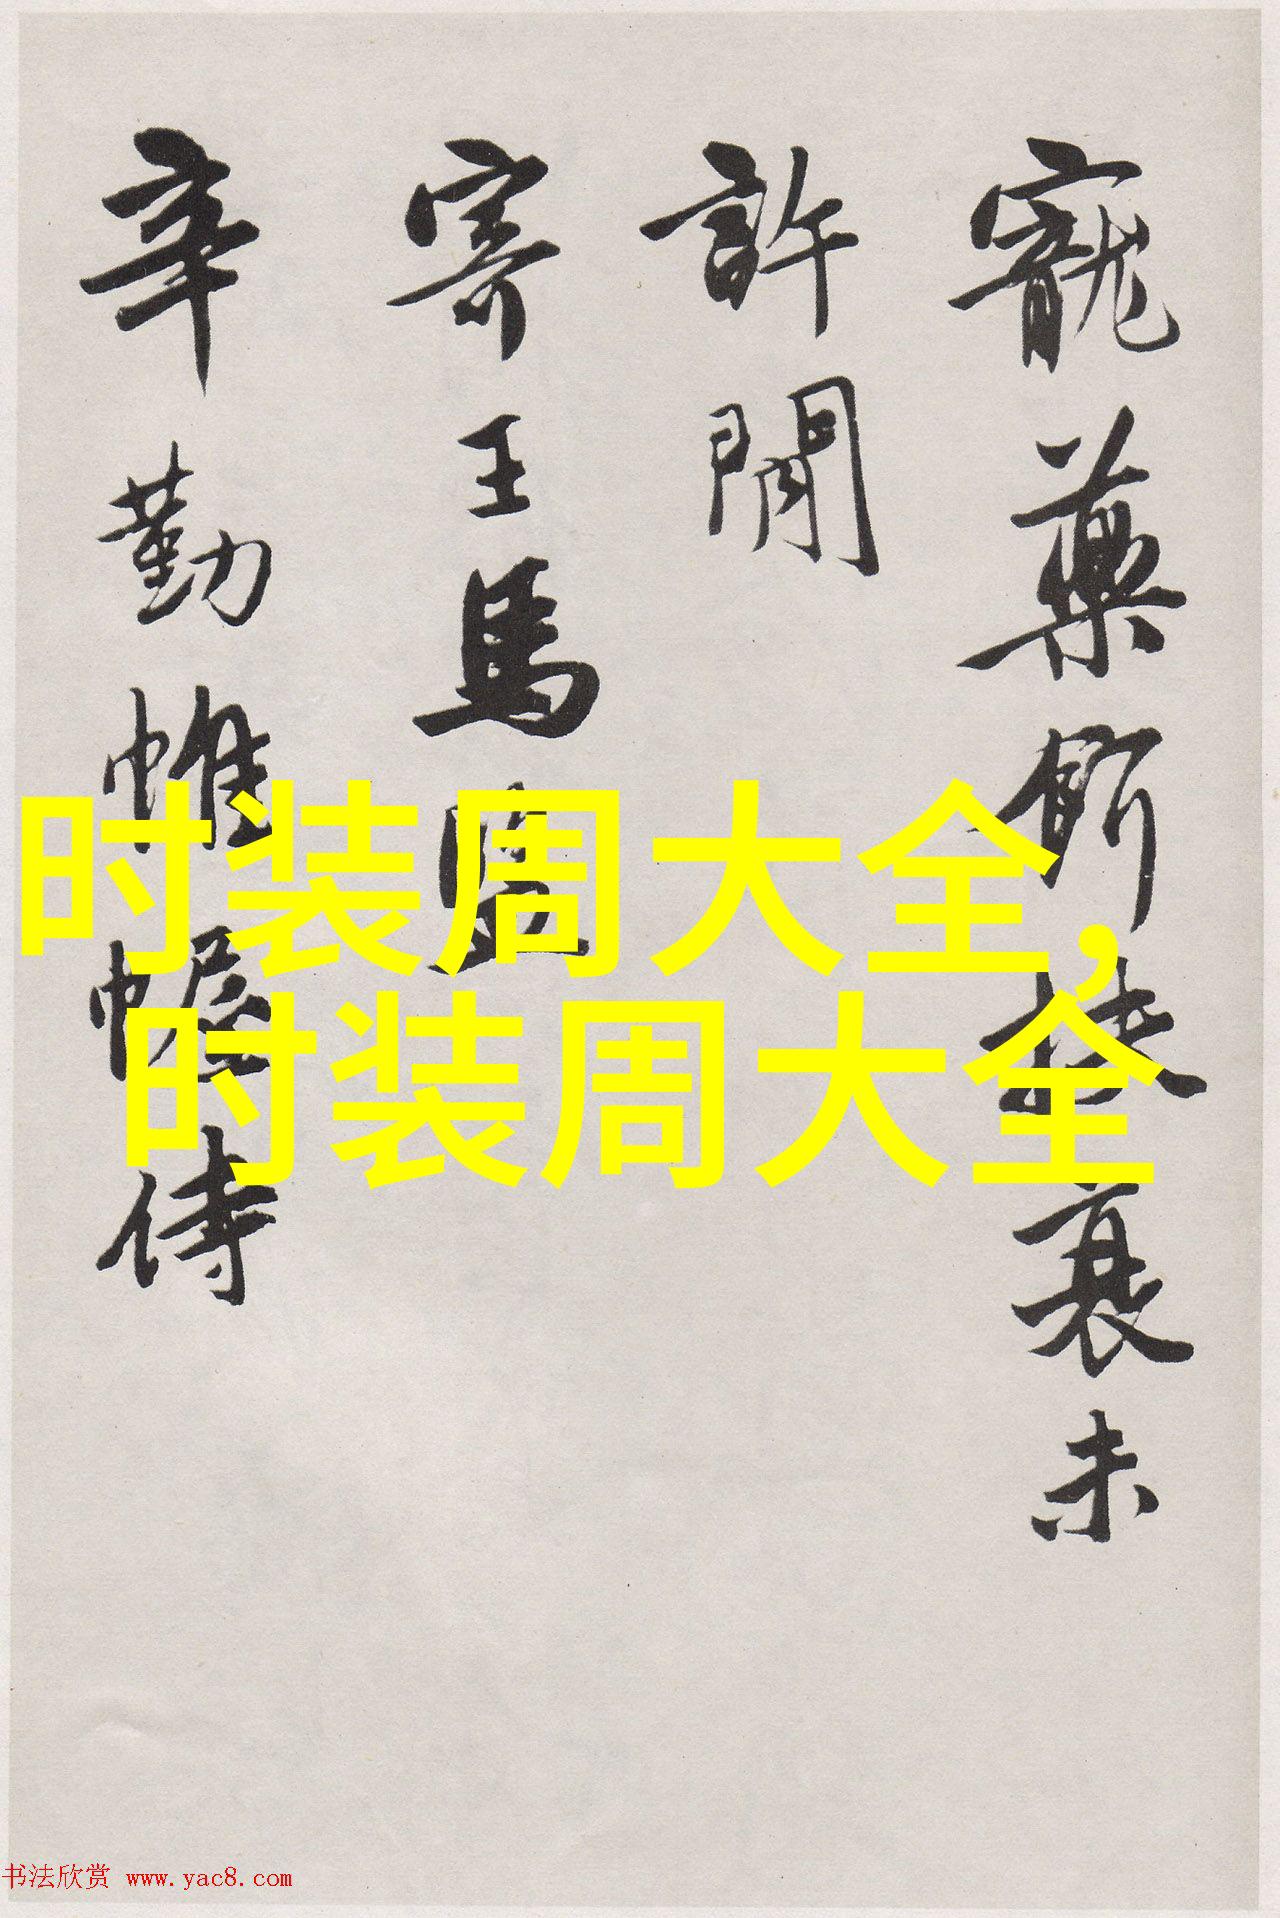 寵藥餌扶衰未
許閒
寄王馬
辛勤帷幄侍
时装周大全,
时装周大全
书法欣赏 www.yac8.com